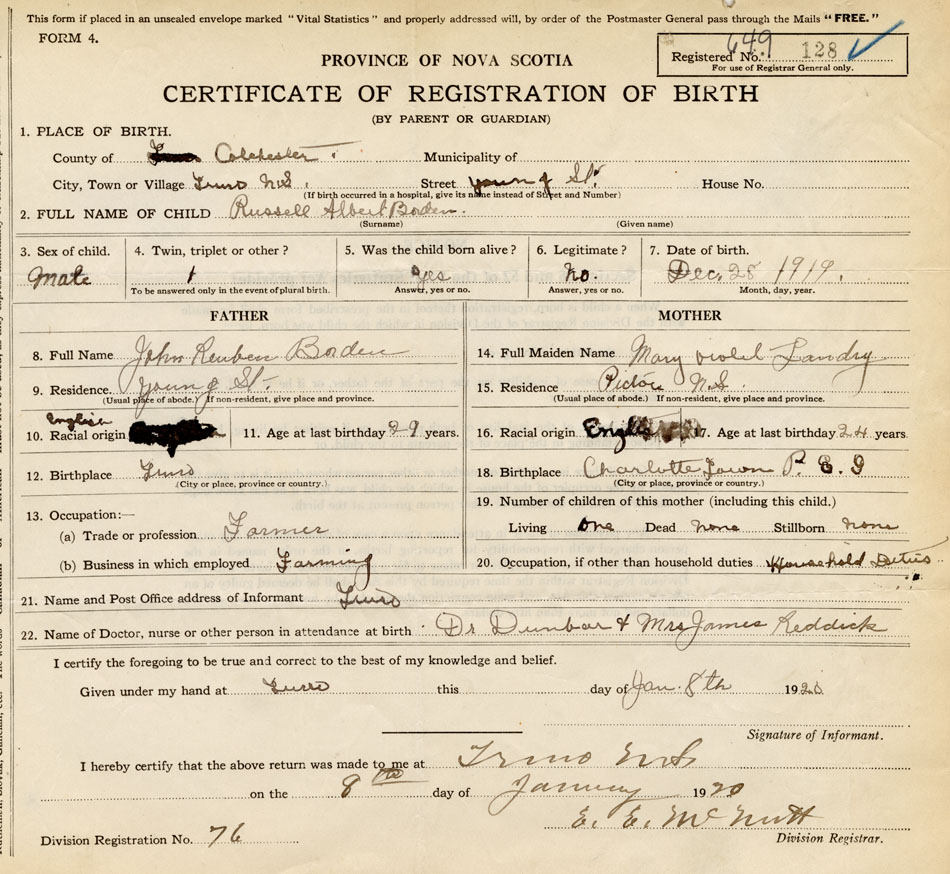 This form if placed in an unsealed envelope marked "Vital Statistics" and properly addressed will, by order of the Postmaster General pass through the Mails "FREE."
FORM 4.
649
Registered No. 128
For use of Registrar General only.
PROVINCE OF NOVA SCOTIA
CERTIFICATE OF REGISTRATION OF BIRTH
(BY PARENT OR GUARDIAN)
1. PLACE OF BIRTH.
County of Colchester Municipality of
City, Town or Village Truro N.S. Street young St. House No.
(If birth occurred in a hospital, give its name instead of Street and Number)
2. FULL NAME OF CHILD Russell Albert Borden.
(Surname) (Given name)
3. Sex of child. 4. Twin, triplet or other? 5. Was the child born alive? 6. Legitimate? 7. Date of birth.
Male 1 yes no. Dec. 28 1919.
To be answered only in the event of plural birth. Answer, yes or no. Answer, yes or no. Month, day, year.
FATHER MOTHER
8. Full Name John Reuben Borden 14. Full Maiden Name Mary violet Landry
9. Residence. young St. 15. Residence Pictou N.S.
(Usual place of abode.) If non-resident, give place and province. (Usual place of abode.) If non-resident, give place and province.
English
10. Racial origin 11. Age at last birthday 29 years. 16. Racial origin 17. Age at last birthday 24 years.
12. Birthplace Truro 18. Birthplace Charlotte Town P. E. I
(City or place, province or country.) (City or place, province or country.)
13. Occupation:— 19. Number of children of this mother (including this child.)
(a) Trade or profession Farmer Living one Dead none Stillborn none
(b) Business in which employed Farming 20. Occupation, if other than household duties Household Duties
21. Name and Post Office address of Informant Truro
22. Name of Doctor, nurse or other person in attendance at birth Dr Dunbar & Mrs James Reddick
I certify the foregoing to be true and correct to the best of my knowledge and belief.
Given under my hand at Truro this day of Jan. 8th 1920
Signature of Informant.
I hereby certify that the above return was made to me at Truro N.S
on the 8th day of January 1920
E. E. McNutt
Division Registration No. 76 Division Registrar.